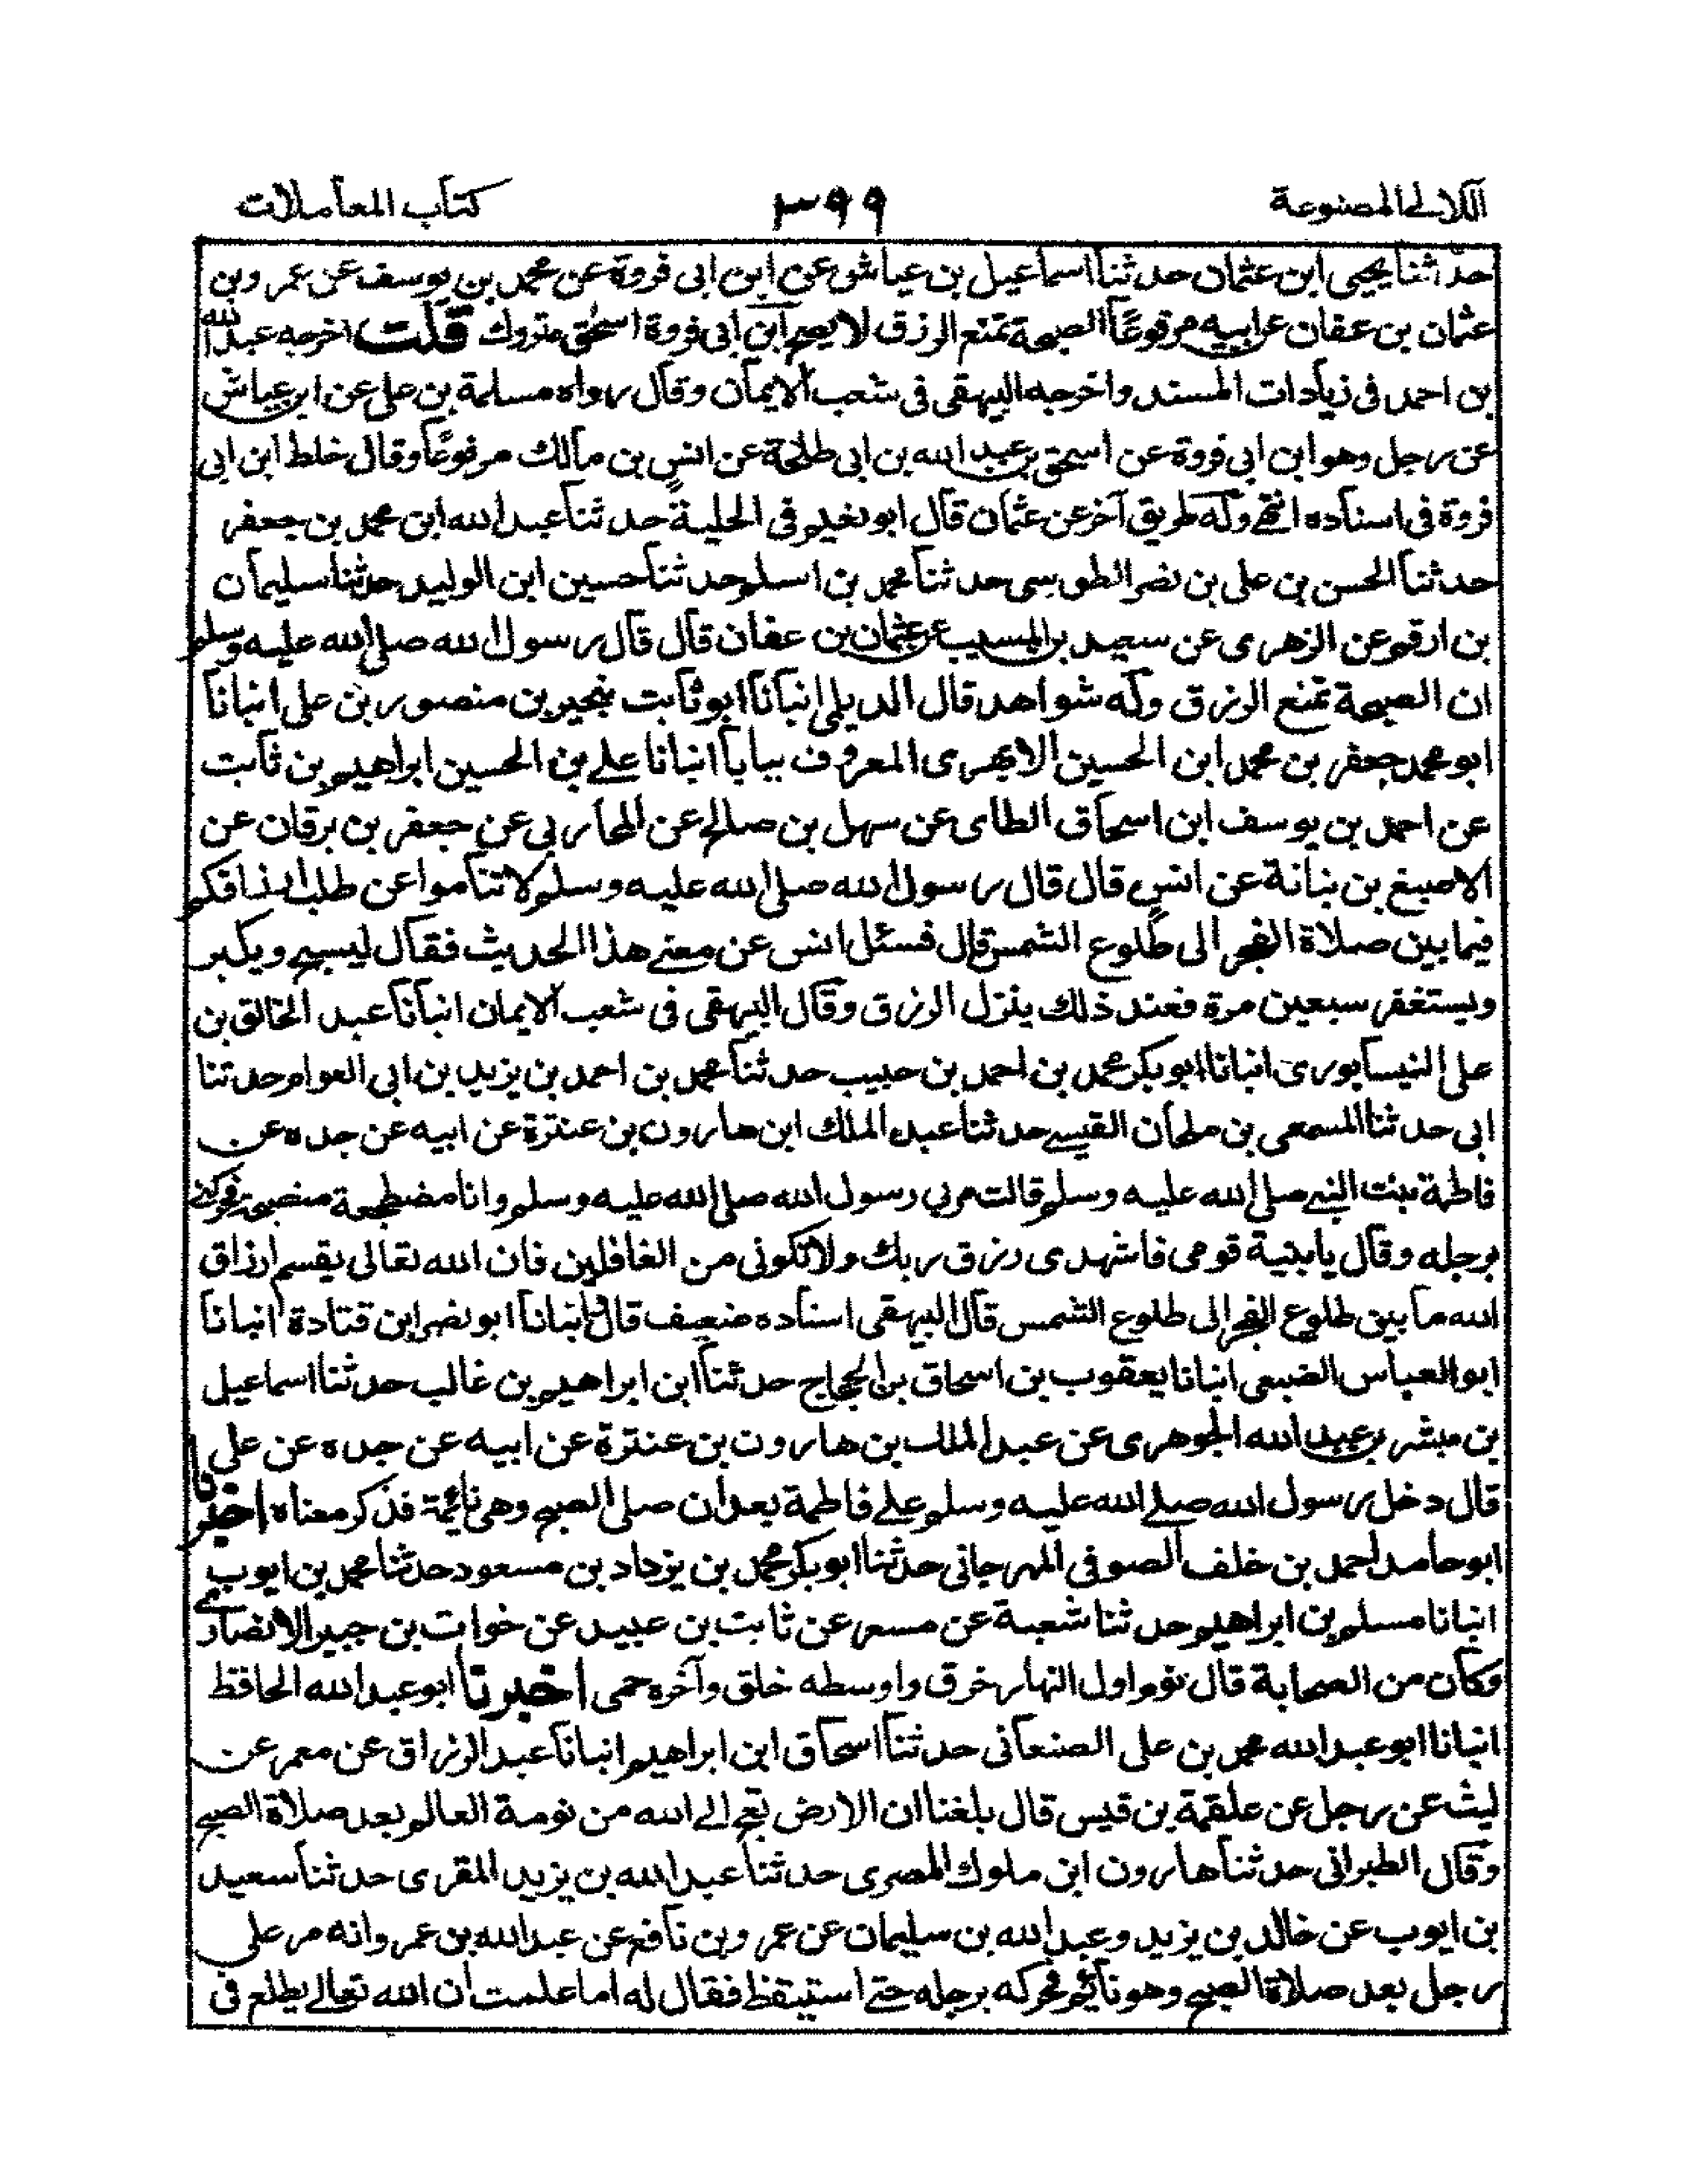 اللآلى المصنوعة
٣٩٩
كتاب المعاملات
حدثنا يحيى ابن عثمان حدثنا اسماعيل بن عياش عن ابن ابى فروة عن محمد بن يوسف عن عمر وبن
عثمان بن عفان عن ابيه مرفوعًا الصبحة تمنع الرزق لا يصح ابن ابى فروة اسحٰق متروك قلت اخرجه عبد الله
بن احمد فى زيادات المسند واخرجه البيهقى فى شعب الايمان وقال رواه مسلمة بن على عن ابن عياش
عن رجل وهو ابن ابى فروة عن اسحق بن عبد الله بن ابى طلحة عن انس بن مالك مرفوعًا وقال خلط ابن ابى
فروة فى اسناده انتهى وله طريق آخر عن عثمان قال ابو نعيم فى الحلية حدثنا عبد الله ابن محمد بن جعفر
حدثنا الحسن بن على بن نصر الطوسى حدثنا محمد بن اسلم حدثنا حسين ابن الوليد حدثنا سليمان
بن ارقم عن الزهرى عن سعيد بن المسيب عن عثمان بن عفان قال قال رسول الله صلى الله عليه وسلم
ان الصبحة تمنع الرزق وله شواهد قال الديلمى انبانا ابو ثابت بنجير بن منصور بن على انبانا
ابو محمد جعفر بن محمد ابن الحسين الابهرى المعروف ببابا انبانا على بن الحسين ابراهيم بن ثابت
عن احمد بن يوسف ابن اسحاق الطاى عن سهل بن صالح عن المحاربى عن جعفر بن برقان عن
الاصبغ بن بنانة عن انس قال قال رسول الله صلى الله عليه وسلم لا تناموا عن طلب ارزاقكم
فيما بين صلاة الفجر الى طلوع الشمس قال فسئل انس عن معنى هذا الحديث فقال ليسبح ويكبر
ويستغفر سبعين مرة فعند ذلك ينزل الرزق وقال البيهقى فى شعب الايمان انبانا عبد الخالق بن
على النيسابورى انبانا ابو بكر محمد بن احمد بن حبيب حدثنا محمد بن احمد بن يزيد بن ابى العوام حدثنا
ابى حدثنا المسمعى بن ملحان القيسى حدثنا عبد الملك ابن هارون بن عنترة عن ابيه عن جده عن
فاطمة بنت النبى صلى الله عليه وسلم قالت مر بى رسول الله صلى الله عليه وسلم وانا مضطجعة متصبحة فحركنى
برجله وقال يا بنية قومى فاشهدى رزق ربك ولا تكونى من الغافلين فان الله تعالى يقسم ارزاق
الله ما بين طلوع الفجر الى طلوع الشمس قال البيهقى اسناده ضعيف قال وانبانا ابو نصر ابن قتادة انبانا
ابو العباس الضبعى انبانا يعقوب بن اسحاق بن الحجاج حدثنا ابن ابراهيم بن غالب حدثنا اسماعيل
بن مبشر بن عبد الله الجوهرى عن عبد الملك بن هارون بن عنترة عن ابيه عن جده عن على
قال دخل رسول الله صلى الله عليه وسلم على فاطمة بعد ان صلى الصبح وهى نائمة فذكر معناه اخبرنا
ابو حامد احمد بن خلف الصوفى المهرجانى حدثنا ابو بكر محمد بن يزداد بن مسعود حدثنا محمد بن ايوب
انبانا مسلم بن ابراهيم حدثنا شعبة عن مسعر عن ثابت بن عبيد عن خوات بن جبير الانصارى
وكان من الصحابة قال نوم اول النهار خرق واوسطه خلق وآخره حمى اخبرنا ابو عبد الله الحافظ
انبانا ابو عبد الله محمد بن على الصنعانى حدثنا اسحاق ابن ابراهيم انبانا عبد الرزاق عن معمر عن
ليث عن رجل عن علقمة بن قيس قال بلغنا ان الارض تعج الى الله من نومة العالم بعد صلاة الصبح
وقال الطبرانى حدثنا هارون ابن ملوك المصرى حدثنا عبد الله بن يزيد المقرى حدثنا سعيد
بن ايوب عن خالد بن يزيد وعبد الله بن سليمان عن عمر وبن نافع عن عبد الله بن عمر وانه مر على
رجل بعد صلاة الصبح وهو نائم فحركه برجله حتى استيقظ فقال له اما علمت ان الله تعالى يطلع فى